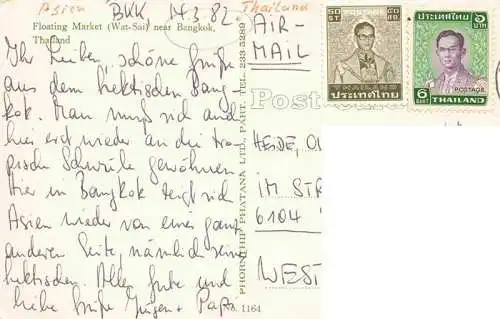 Asien BKK 14.3.82 Thailand
Floating Market (Wat-Sai) near Bangkok,
Thailand
Ihr Lieben, schöne Grüße
aus dem hektischen Bang-
kok. Man muß sich auch
hier erst wieder an die tro-
pische Schwüle gewöhnen.
Hier in Bangkok zeigt sich
Asien wieder von einer ganz
anderen Seite, nämlich seine
hektischen. Alles Gute und
liebe Grüße Jürgen + Papi
PHORNTHIP PHATANA LTD., PART. TEL. 233 5289
No. 1164
AIR-
MAIL
Post
HEIDE, OL
IM STR
6104
WEST
50
ST.
๕๐
สต.
THAILAND
ประเทศไทย
ประเทศไทย
๖
บาท
POSTAGE
6
BAHT
THAILAND